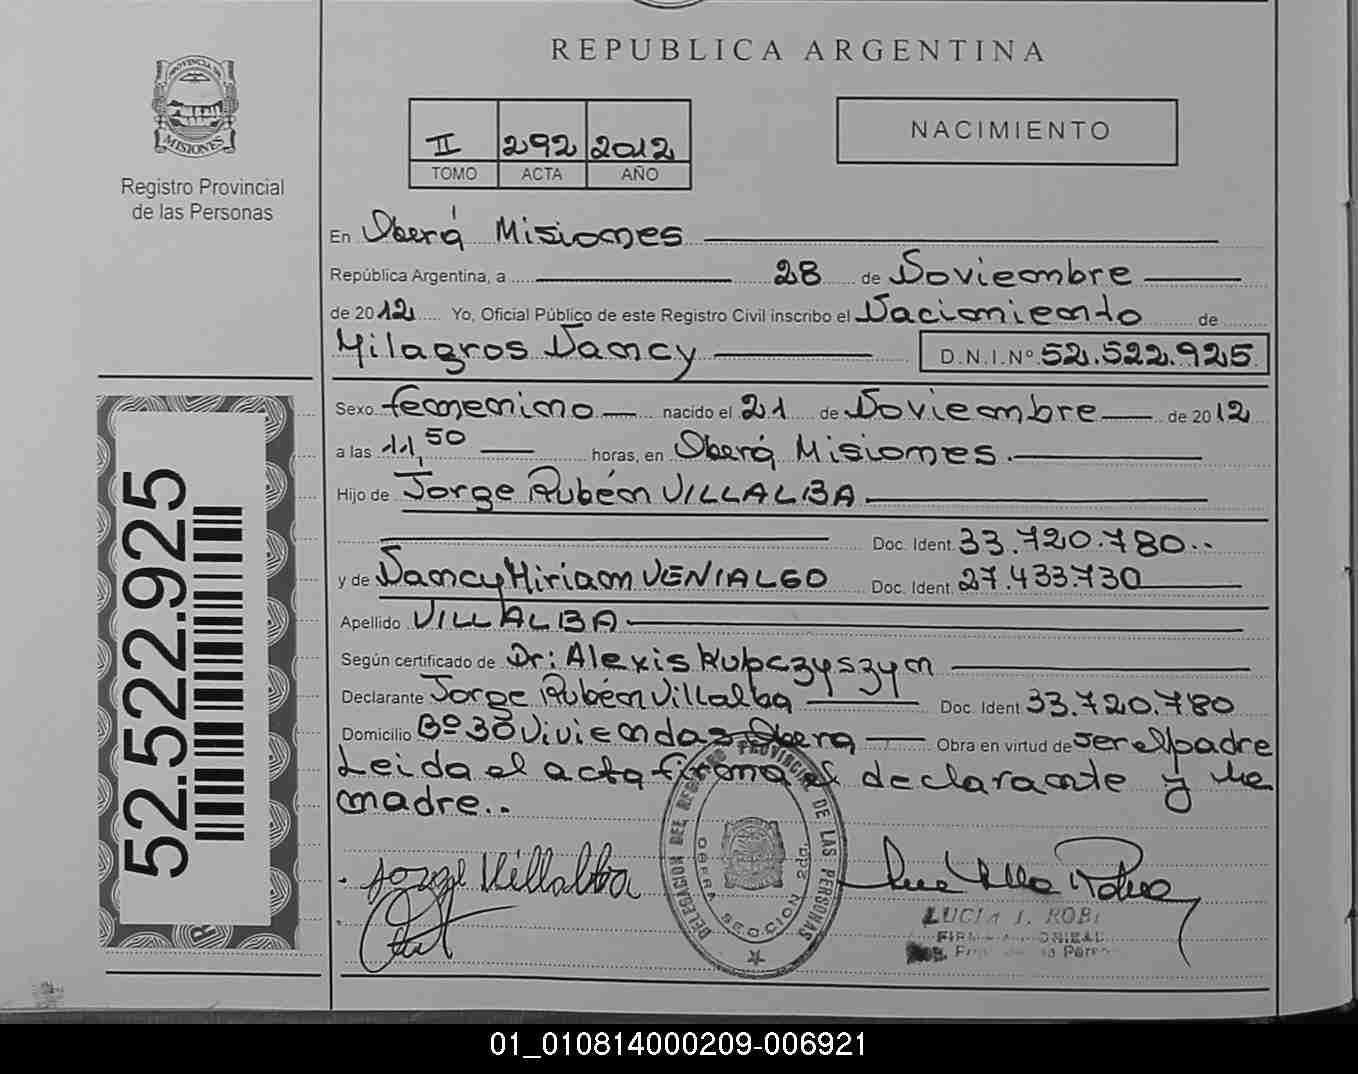 REPUBLICA ARGENTINA
PROVINCIA DE
MISIONES
Registro Provincial
de las Personas
II 292 2012
TOMO ACTA AÑO
NACIMIENTO
En Oberá Misiones
República Argentina, a 28 de Noviembre
de 2012 Yo, Oficial Público de este Registro Civil inscribo el Nacimiento de
Milagros Nancy D.N.I.Nº 52.522.925
Sexo femenino nacido el 21 de Noviembre de 2012
a las 11,50 horas, en Oberá Misiones.
Hijo de Jorge Rubén VILLALBA
Doc. Ident. 33.720.780..
y de Nancy Miriam VENIALGO Doc. Ident. 27.433.730
Apellido VILLALBA.
Según certificado de Dr: Alexis Kupczyszyn
Declarante Jorge Rubén Villalba Doc. Ident 33.720.780
Domicilio Bº 38 Viviendas Oberá Obra en virtud de ser el padre
Leida el acta firma el declarante y la
madre..
52.522.925
Jorge Villalba
DELEGACION DEL REGISTRO PROVINCIAL DE LAS PERSONAS
OBERA SECCION 2da.
LUCIA I.
01_010814000209-006921